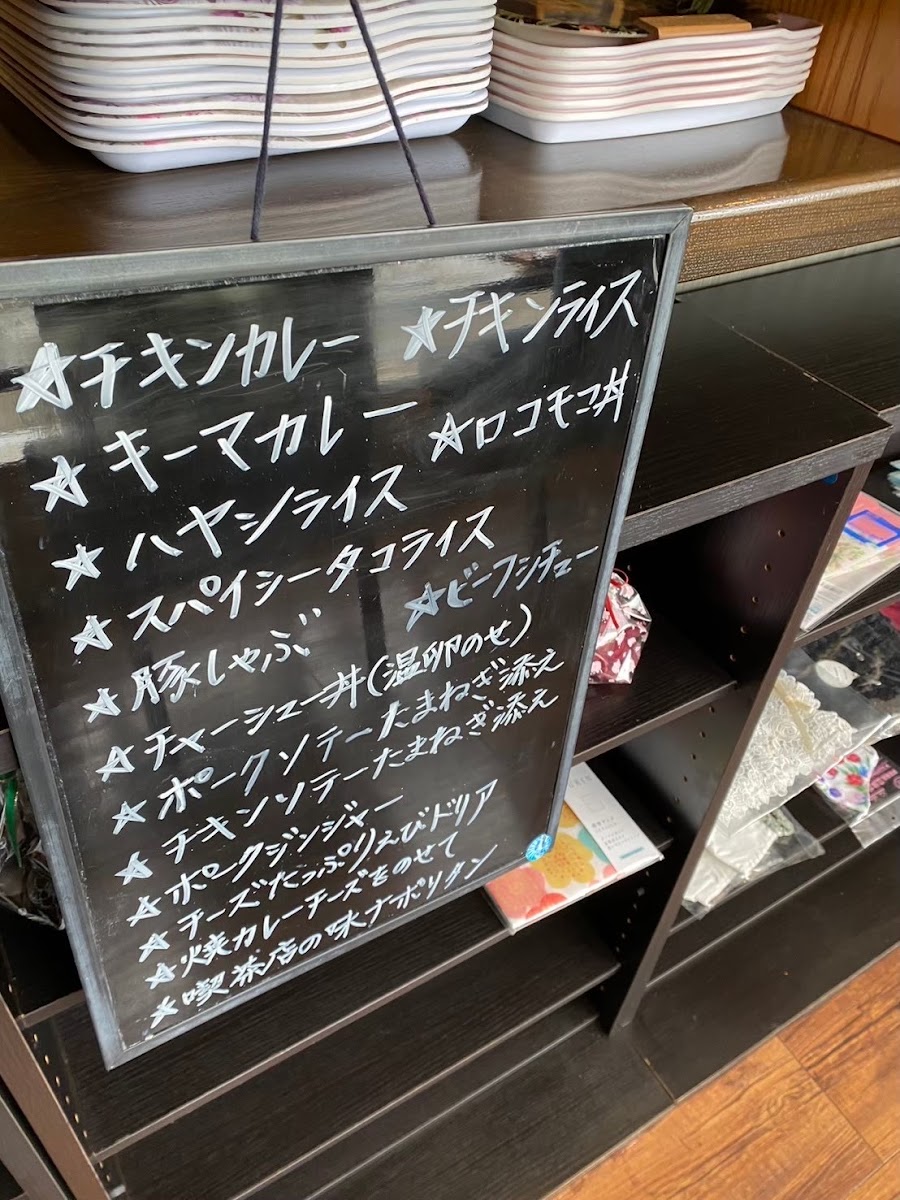 ☆チキンカレー ☆チキンライス
☆キーマカレー ☆ロコモコ丼
☆ハヤシライス
☆スパイシータコライス
☆豚しゃぶ ☆ビーフシチュー
☆チャーシュー丼(温卵のせ)
☆ポークソテーたまねぎ添え
☆チキンソテーたまねぎ添え
☆ポークジンジャー
☆チーズたっぷりえびドリア
☆焼カレーチーズをのせて
☆喫茶店の味ナポリタン